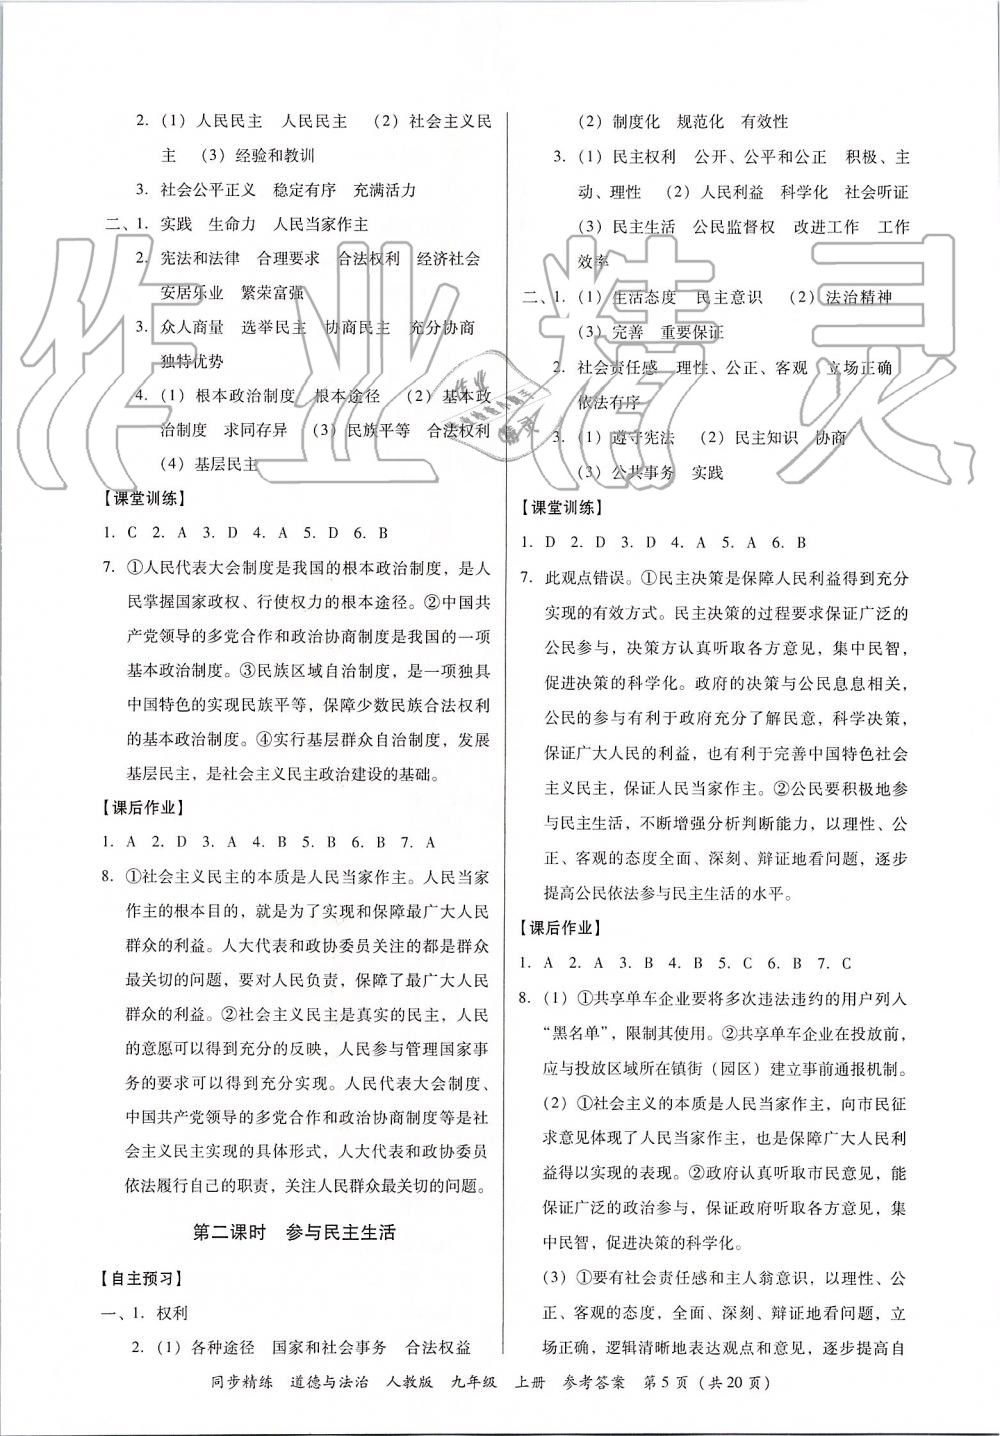 2. (1) 人民民主　人民民主　(2) 社会主义民
主　(3) 经验和教训
3. 社会公平正义　稳定有序　充满活力
二、1. 实践　生命力　人民当家作主
2. 宪法和法律　合理要求　合法权利　经济社会
安居乐业　繁荣富强
3. 众人商量　选举民主　协商民主　充分协商
独特优势
4. (1) 根本政治制度　根本途径　(2) 基本政
治制度　求同存异　(3) 民族平等　合法权利
(4) 基层民主
【课堂训练】
1. C　2. A　3. D　4. A　5. D　6. B
7. ①人民代表大会制度是我国的根本政治制度，是人
民掌握国家政权、行使权力的根本途径。②中国共
产党领导的多党合作和政治协商制度是我国的一项
基本政治制度。③民族区域自治制度，是一项独具
中国特色的实现民族平等，保障少数民族合法权利
的基本政治制度。④实行基层群众自治制度，发展
基层民主，是社会主义民主政治建设的基础。
【课后作业】
1. A　2. D　3. A　4. B　5. B　6. B　7. A
8. ①社会主义民主的本质是人民当家作主。人民当家
作主的根本目的，就是为了实现和保障最广大人民
群众的利益。人大代表和政协委员关注的都是群众
最关切的问题，要对人民负责，保障了最广大人民
群众的利益。②社会主义民主是真实的民主，人民
的意愿可以得到充分的反映，人民参与管理国家事
务的要求可以得到充分实现。人民代表大会制度、
中国共产党领导的多党合作和政治协商制度等是社
会主义民主实现的具体形式，人大代表和政协委员
依法履行自己的职责，关注人民群众最关切的问题。
第二课时　参与民主生活
【自主预习】
一、1. 权利
2. (1) 各种途径　国家和社会事务　合法权益
(2) 制度化　规范化　有效性
3. (1) 民主权利　公开、公平和公正　积极、主
动、理性　(2) 人民利益　科学化　社会听证
(3) 民主生活　公民监督权　改进工作　工作
效率
二、1. (1) 生活态度　民主意识　(2) 法治精神
(3) 完善　重要保证
2. 社会责任感　理性、公正、客观　立场正确
依法有序
3. (1) 遵守宪法　(2) 民主知识　协商
(3) 公共事务　实践
【课堂训练】
1. D　2. D　3. D　4. A　5. A　6. B
7. 此观点错误。①民主决策是保障人民利益得到充分
实现的有效方式。民主决策的过程要求保证广泛的
公民参与，决策方认真听取各方意见，集中民智，
促进决策的科学化。政府的决策与公民息息相关，
公民的参与有利于政府充分了解民意，科学决策，
保证广大人民的利益，也有利于完善中国特色社会
主义民主，保证人民当家作主。②公民要积极地参
与民主生活，不断增强分析判断能力，以理性、公
正、客观的态度全面、深刻、辩证地看问题，逐步
提高公民依法参与民主生活的水平。
【课后作业】
1. A　2. A　3. B　4. B　5. C　6. B　7. C
8. (1) ①共享单车企业要将多次违法违约的用户列入
“黑名单”，限制其使用。②共享单车企业在投放前，
应与投放区域所在镇街（园区）建立事前通报机制。
(2) ①社会主义的本质是人民当家作主，向市民征
求意见体现了人民当家作主，也是保障广大人民利
益得以实现的表现。②政府认真听取市民意见，能
保证广泛的政治参与，保证政府听取各方意见，集
中民智，促进决策的科学化。
(3) ①要有社会责任感和主人翁意识，以理性、公
正、客观的态度，全面、深刻、辩证地看问题，立
场正确、逻辑清晰地表达观点和意见，逐步提高自
同步精练　道德与法治　人教版　九年级　上册　参考答案　第 5 页（共 20 页）
作业精灵